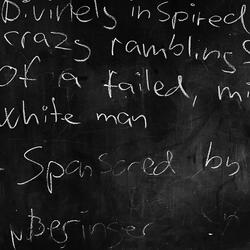 Divinely inspired
crazy rambling
of a failed, mi
white man
Sponsored by
Beringer